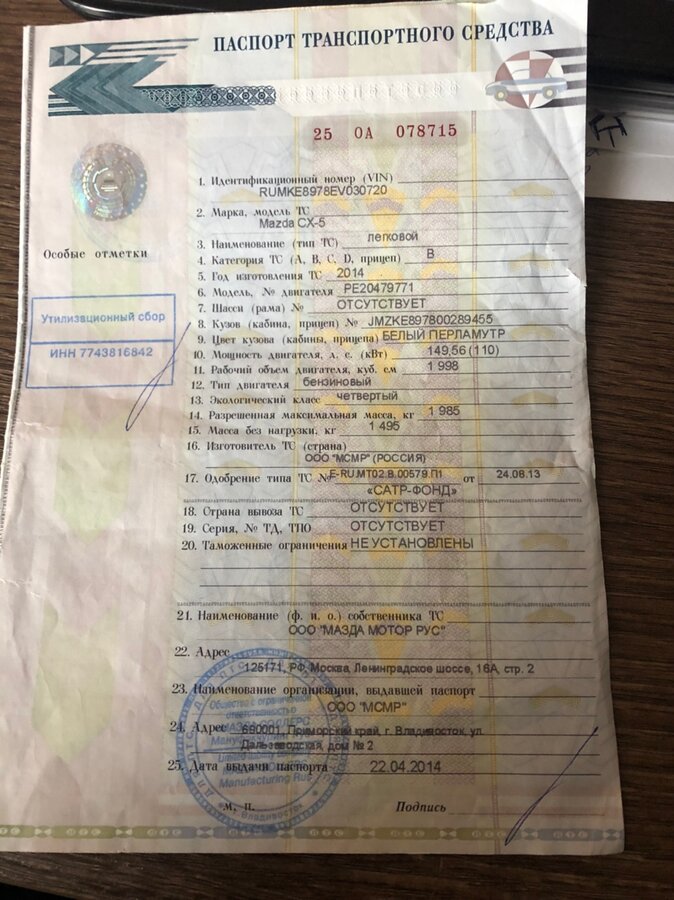 ПАСПОРТ ТРАНСПОРТНОГО СРЕДСТВА
25 ОА 078715
Особые отметки
Утилизационный сбор
ИНН 7743816842
1. Идентификационный номер (VIN)
RUMKE8978EV030720
2. Марка, модель ТС
Mazda CX-5
3. Наименование (тип ТС) легковой
4. Категория ТС (А, В, С, D, прицеп) В
5. Год изготовления ТС 2014
6. Модель, № двигателя PE20479771
7. Шасси (рама) № ОТСУТСТВУЕТ
8. Кузов (кабина, прицеп) № JMZKE897800289455
9. Цвет кузова (кабины, прицепа) БЕЛЫЙ ПЕРЛАМУТР
10. Мощность двигателя, л. с. (кВт) 149,56 (110)
11. Рабочий объем двигателя, куб. см 1 998
12. Тип двигателя бензиновый
13. Экологический класс четвертый
14. Разрешенная максимальная масса, кг 1 985
15. Масса без нагрузки, кг 1 495
16. Изготовитель ТС (страна)
ООО "МСМР" (РОССИЯ)
17. Одобрение типа ТС № E-RU.MT02.B.00579.П1 от 24.08.13
«САТР-ФОНД»
18. Страна вывоза ТС ОТСУТСТВУЕТ
19. Серия, № ТД, ТПО ОТСУТСТВУЕТ
20. Таможенные ограничения НЕ УСТАНОВЛЕНЫ
21. Наименование (ф. и. о.) собственника ТС
ООО "МАЗДА МОТОР РУС"
22. Адрес
125171, РФ, Москва, Ленинградское шоссе, 16А, стр. 2
23. Наименование организации, выдавшей паспорт
ООО "МСМР"
24. Адрес 690001, Приморский край, г. Владивосток, ул.
Дальзаводская, дом № 2
25. Дата выдачи паспорта 22.04.2014
М. п. Подпись
Общество с ограниченной
ответственностью
Manufacturing Rus
Владивосток